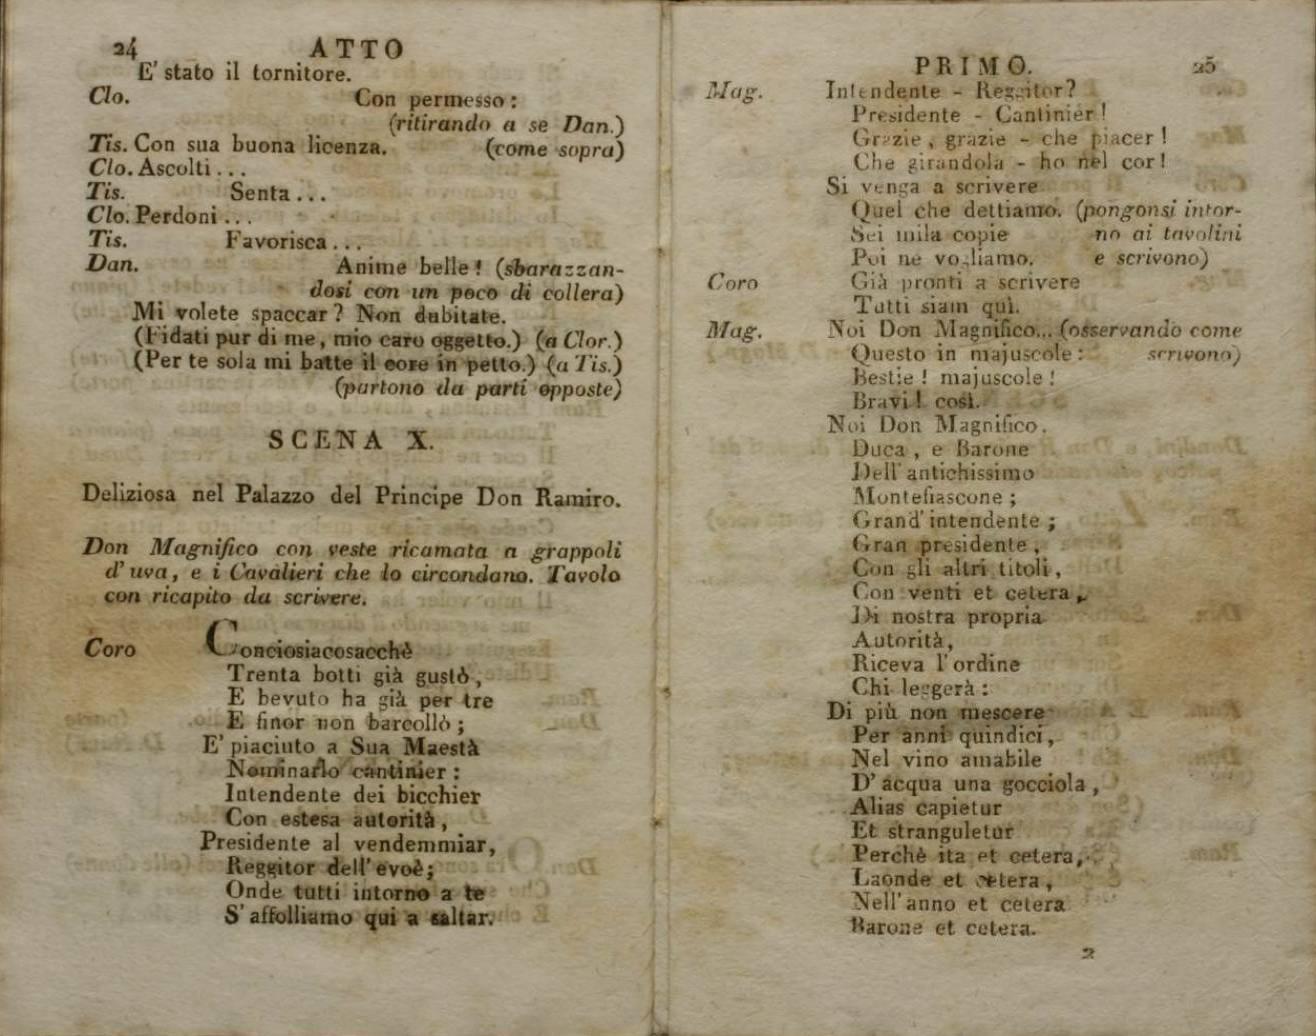 24 ATTO
E' stato il tornitore.
Clo. Con permesso:
(ritirando a se Dan.)
Tis. Con sua buona licenza. (come sopra)
Clo. Ascolti...
Tis. Senta...
Clo. Perdoni...
Tis. Favorisca...
Dan. Anime belle! (sbarazzan-
dosi con un poco di collera)
Mi volete spaccar? Non dubitate.
(Fidati pur di me, mio caro oggetto.) (a Clor.)
(Per te sola mi batte il core in petto.) (a Tis.)
(partono da parti opposte)
SCENA X.
Deliziosa nel Palazzo del Principe Don Ramiro.
Don Magnifico con veste ricamata a grappoli
d'uva, e i Cavalieri che lo circondano. Tavolo
con ricapito da scrivere.
Coro Conciosiacosacchè
Trenta botti già gustò,
E bevuto ha già per tre
E finor non barcollò;
E' piaciuto a Sua Maestà
Nominarlo cantinier:
Intendente dei bicchier
Con estesa autorità,
Presidente al vendemmiar,
Reggitor dell'evoè;
Onde tutti intorno a te
S'affolliamo qui a saltar.
PRIMO. 25
Mag. Intendente - Reggitor?
Presidente - Cantinier!
Grazie, grazie - che piacer!
Che girandola - ho nel cor!
Si venga a scrivere
Quel che dettiamo. (pongonsi intor-
Sei mila copie no ai tavolini
Poi ne vogliamo. e scrivono)
Coro Già pronti a scrivere
Tutti siam quì.
Mag. Noi Don Magnifico... (osservando come
Questo in majuscole: scrivono)
Bestie! majuscole!
Bravi! così.
Noi Don Magnifico.
Duca, e Barone
Dell'antichissimo
Montefiascone;
Grand'intendente;
Gran presidente,
Con gli altri titoli,
Con venti et cetera,
Di nostra propria
Autorità,
Riceva l'ordine
Chi leggerà:
Di più non mescere
Per anni quindici,
Nel vino amabile
D'acqua una gocciola,
Alias capietur
Et stranguletur
Perchè ita et cetera,
Laonde et cetera,
Nell'anno et cetera
Barone et cetera.
2